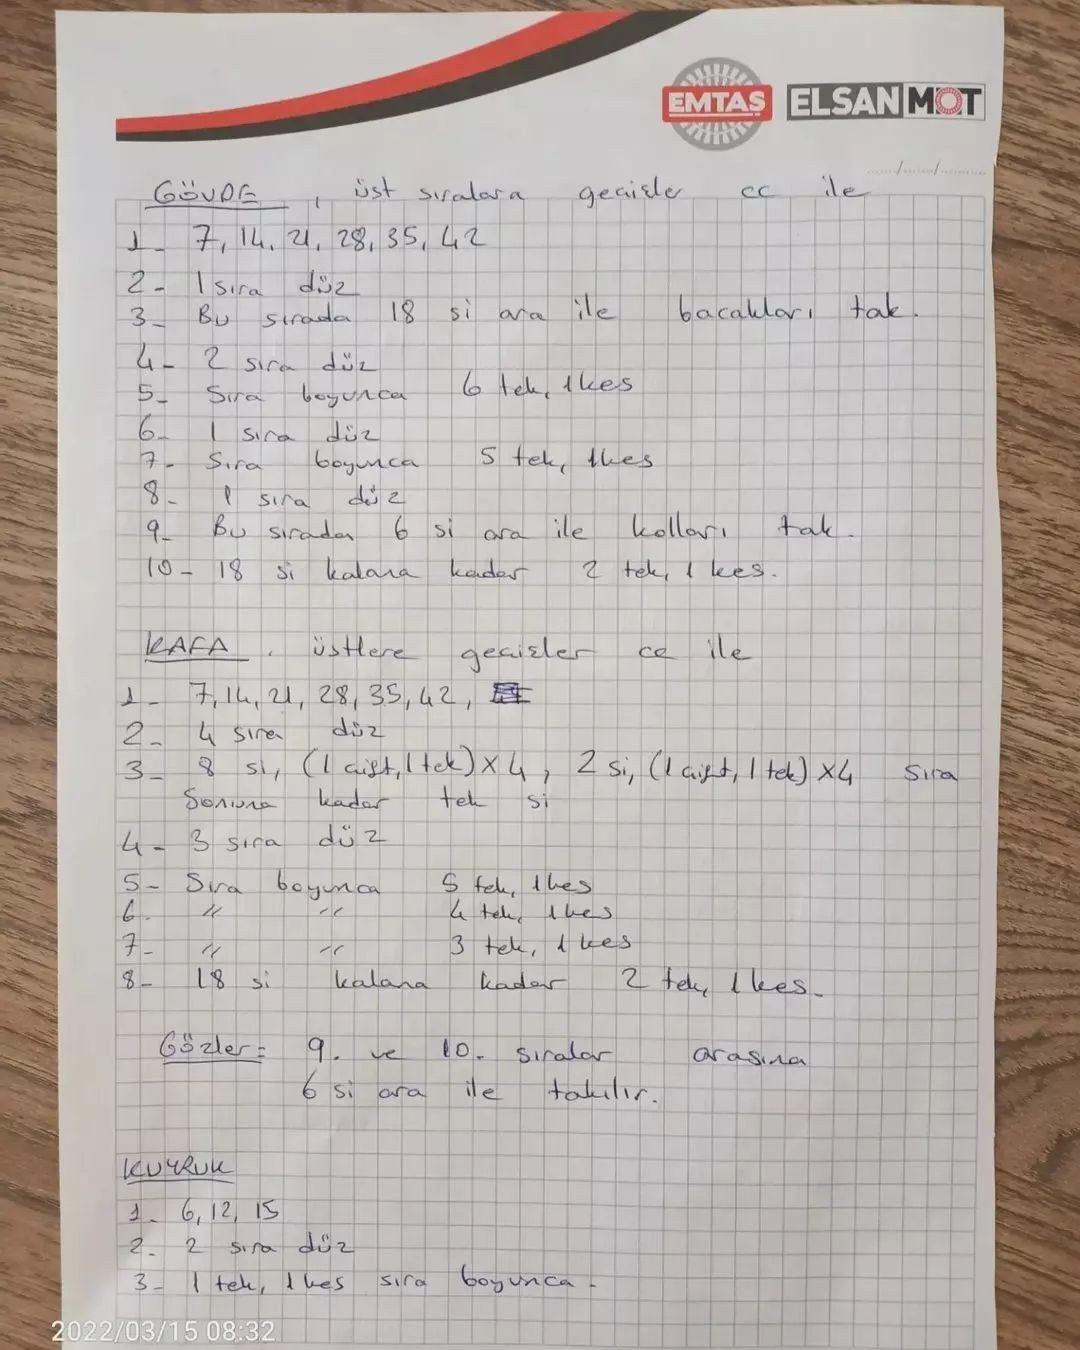 EMTAŞ ELSAN MOT
....../....../............
GÖVDE , üst sıralara geçişler cc ile
1- 7, 14, 21, 28, 35, 42
2- 1 sıra düz
3- Bu sırada 18 si ara ile bacakları tak.
4- 2 sıra düz
5- Sıra boyunca 6 tek, 1 kes
6- 1 sıra düz
7- Sıra boyunca 5 tek, 1 kes
8- 1 sıra düz
9- Bu sırada 6 si ara ile kolları tak.
10- 18 si kalana kadar 2 tek, 1 kes.
KAFA . üstlere geçişler cc ile
1- 7, 14, 21, 28, 35, 42,
2- 4 sıra düz
3- 8 si, (1 çift, 1 tek) X 4 , 2 si, (1 çift, 1 tek) X4 sıra
sonuna kadar tek si
4- 3 sıra düz
5- Sıra boyunca 5 tek, 1 kes
6. " " 4 tek, 1 kes
7- " " 3 tek, 1 kes
8- 18 si kalana kadar 2 tek, 1 kes.
Gözler = 9. ve 10. sıralar arasına
6 si ara ile takılır.
KUYRUK
1. 6, 12, 15
2. 2 sıra düz
3- 1 tek, 1 kes sıra boyunca.
2022/03/15 08:32